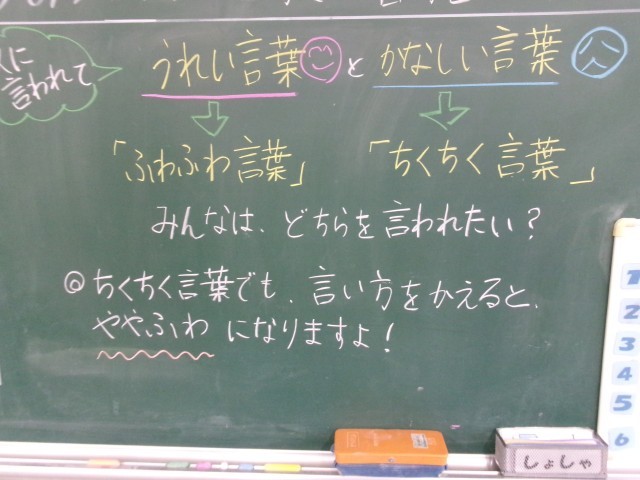 言われて
うれしい言葉と かなしい言葉
「ふわふわ言葉」 「ちくちく言葉」
みんなは、どちらを言われたい？
◎ちくちく言葉でも、言い方をかえると、
ややふわ になりますよ！
1
2
3
4
5
6
しょしゃ